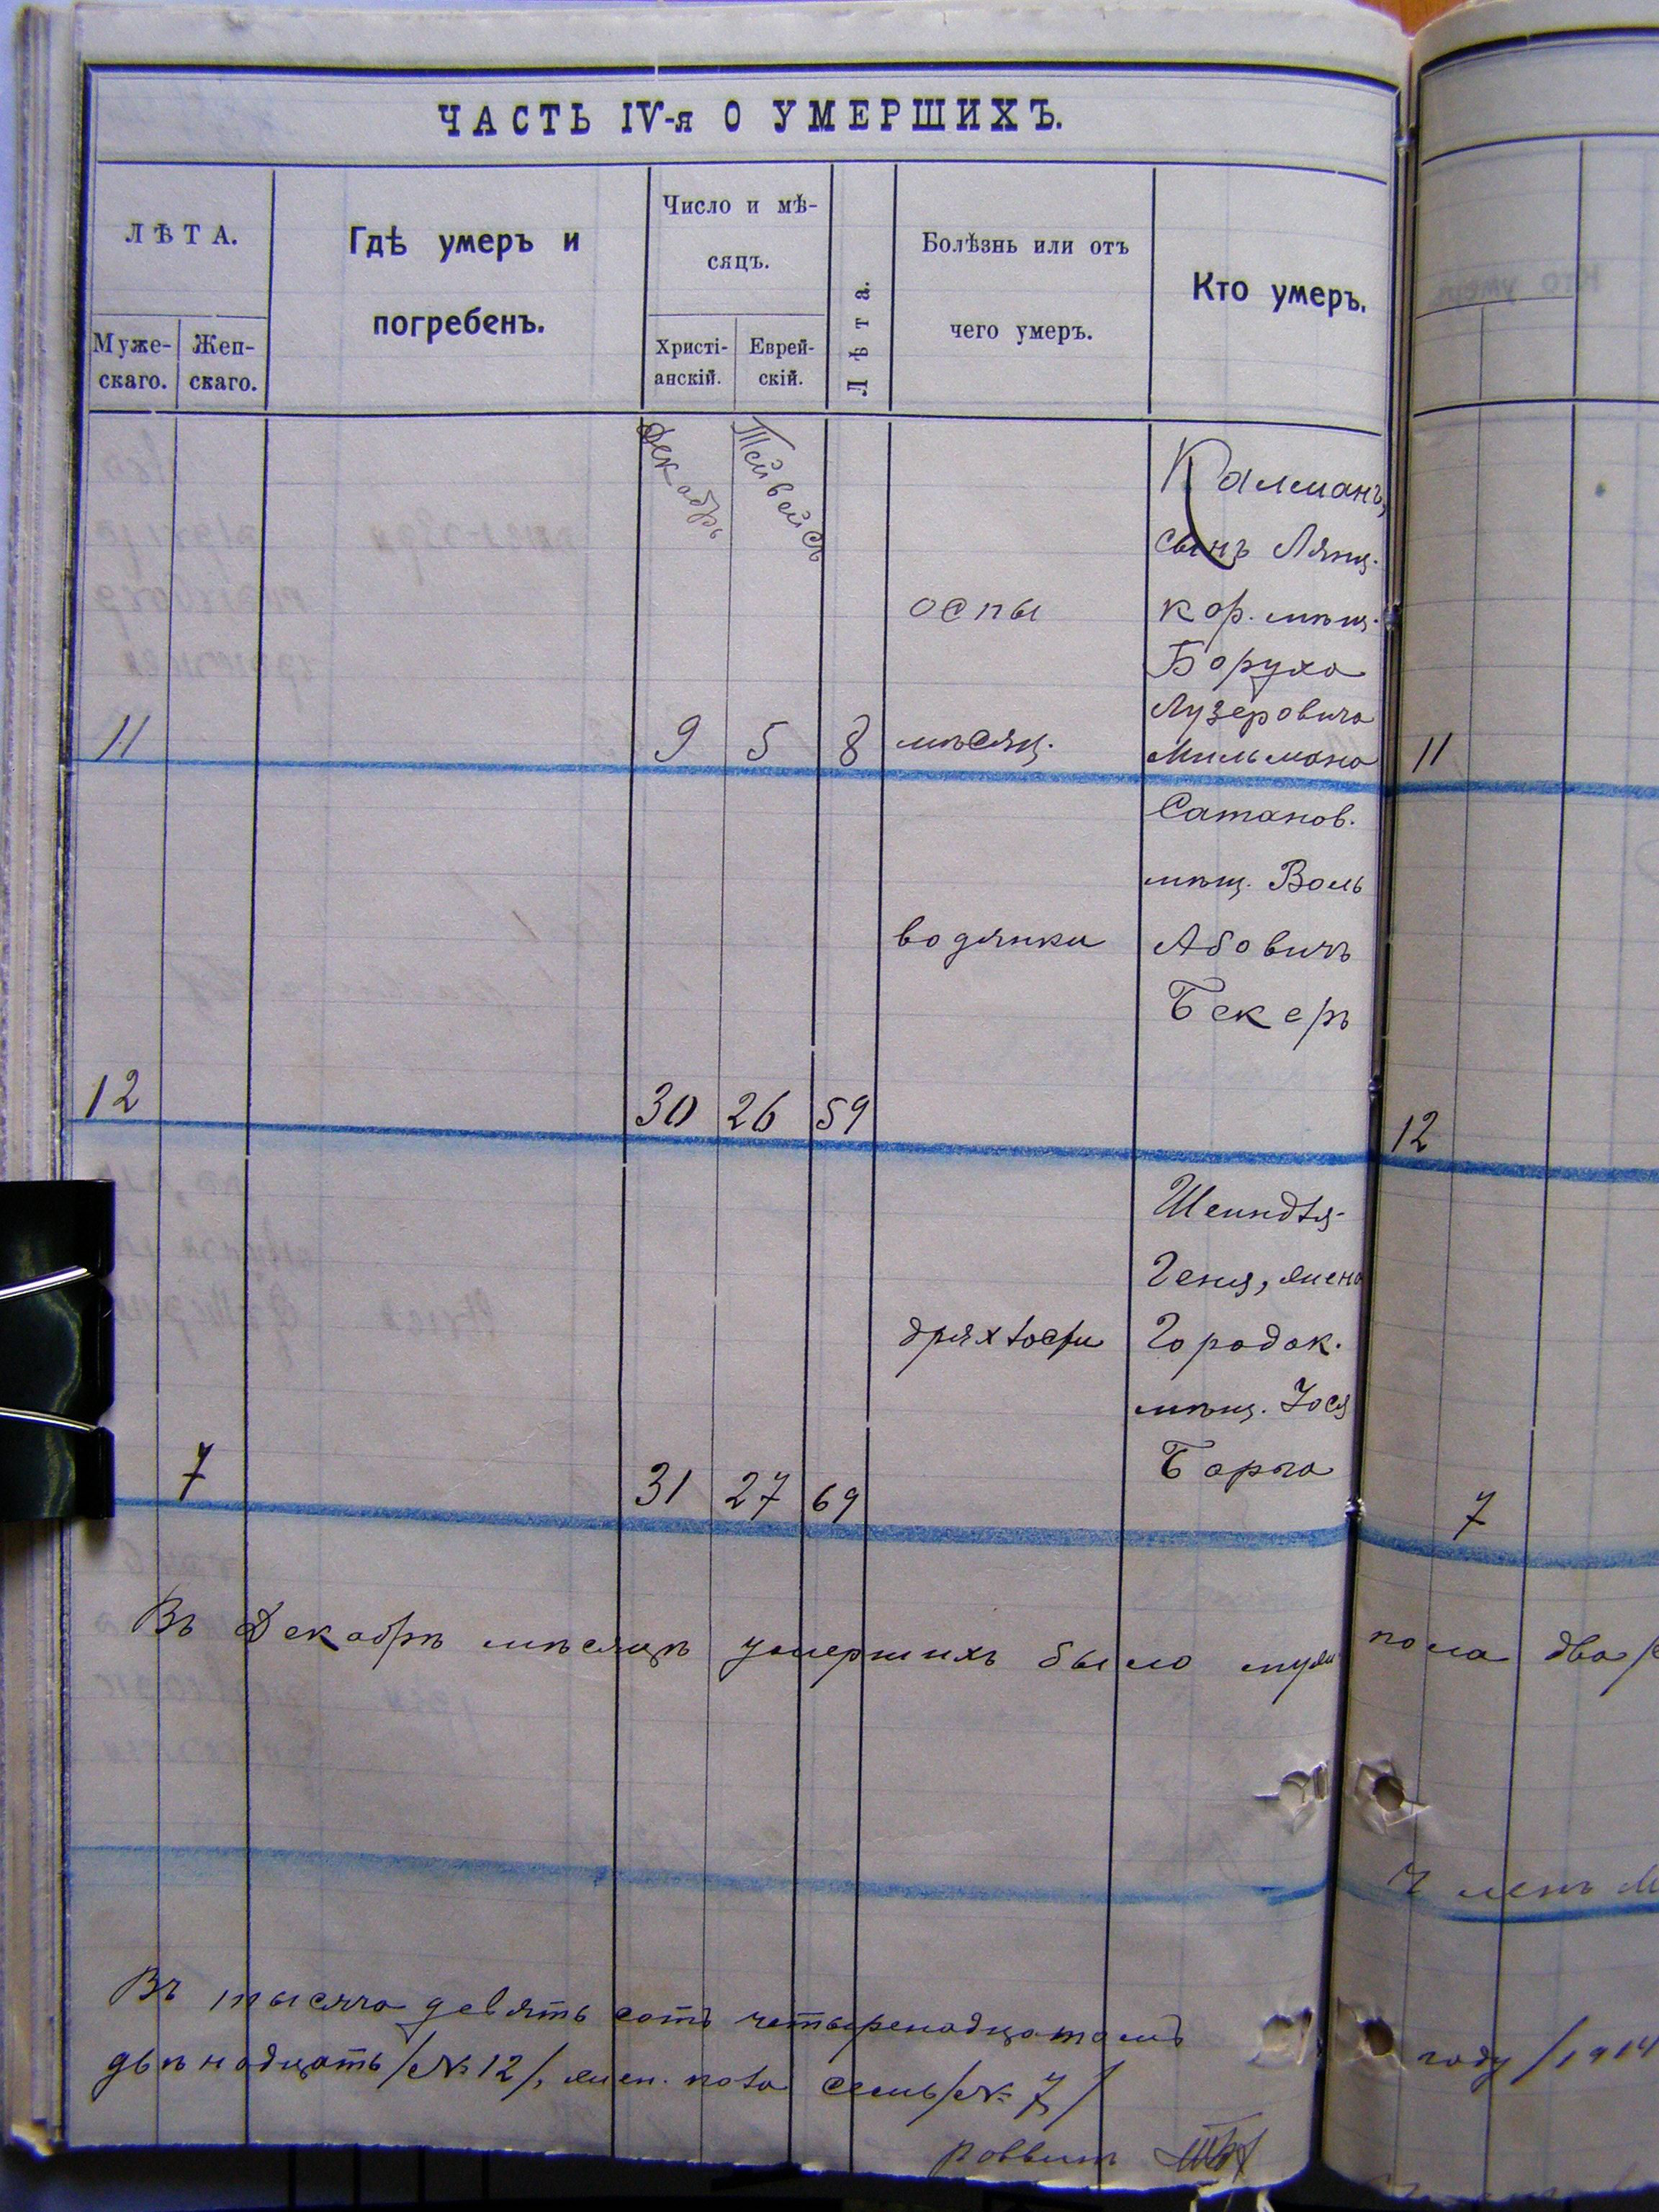 ЧАСТЬ IV-я О УМЕРШИХЪ.
ЛѢТА.
Муже-
скаго.
Жен-
скаго.
Гдѣ умеръ и
погребенъ.
Число и мѣ-
сяцъ.
Христі-
анскій.
Еврей-
скій.
Лѣта.
Болѣзнь или отъ
чего умеръ.
Кто умеръ.
Декабрь
Тейвейсъ
Калманъ,
сынъ Лянц-
кор. мѣщ.
Боруха
Лузеровича
Мильмана
оспы
11
9
5
8
мѣсяц.
11
Сатанов.
мѣщ. Воль
Абовичъ
Бекеръ
водянки
12
30
26
59
12
Шейндля-
Геня, жена
Городок.
мѣщ. Іося
Барга
дряхлости
7
31
27
69
7
Въ Декабрѣ мѣсяцѣ умершихъ было муж
пола два
Членъ М
Въ тысяча девятьсотъ четыренадцатомъ
году /1914
двѣнадцать /№ 12/, жен. пола семь /№ 7/
Раввинъ